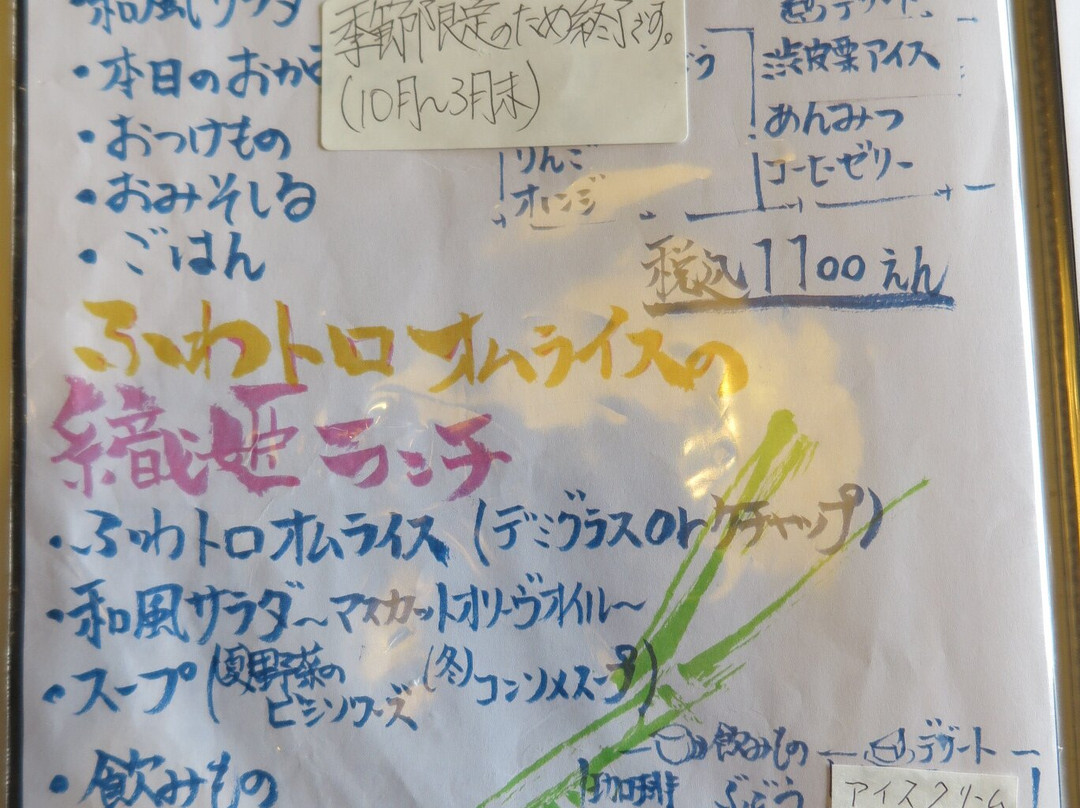 和風サラダ
季節限定のため終了です。
(10月〜3月末)
・本日のおか
・おつけもの
・おみそしる
・ごはん
りんご
オレンジ
デザート
渋皮栗アイス
あんみつ
コーヒーゼリー
税込1100えん
ふわトロオムライスの
織姫ランチ
・ふわトロオムライス(デミグラスorケチャップ)
・和風サラダ〜マスカットオリーヴオイル〜
・スープ(夏)野菜の (冬)コンソメスープ)
ビシソワーズ
・飲みもの
飲みもの
デザート
珈琲
ぶどう
アイスクリーム